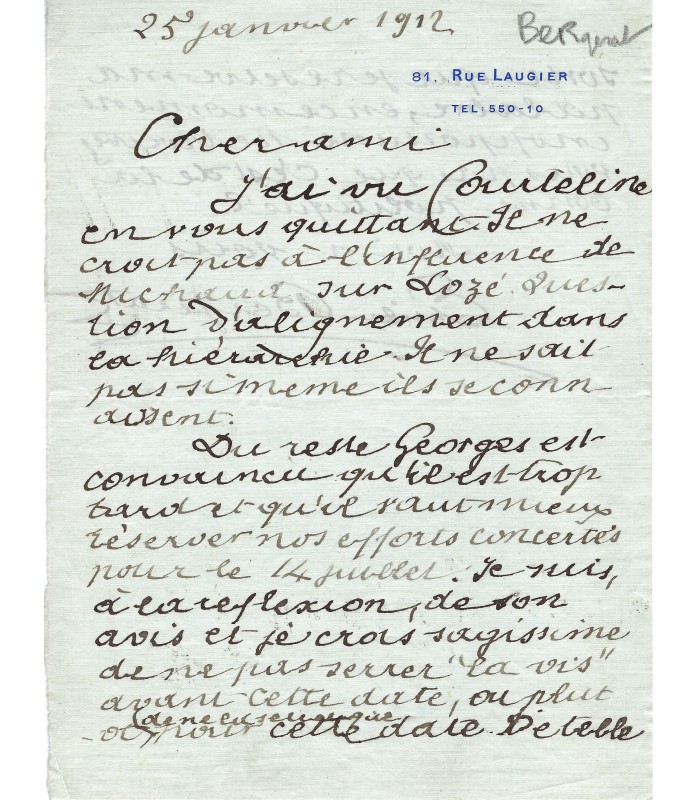 25 janvier 1912
Bergerat
81. RUE LAUGIER
TEL: 550-10
Cher ami
J'ai vu Courteline
en vous quittant. Il ne
croit pas à l'influence de
Michaud sur Lozé. Ques-
tion d'alignement dans
la hiérarchie. Il ne sait
pas si meme ils se conn
aissent.
Du reste Georges est
convaincu qu'il est trop
tard et qu'il vaut mieux
réserver nos efforts concertés
pour le 14 juillet. Je suis,
à la reflexion, de son
avis et je crois sagissime
de ne pas serrer "la vis"
avant cette date, ou plut
de ne la serrer que
-ot, pour cette date. De telle